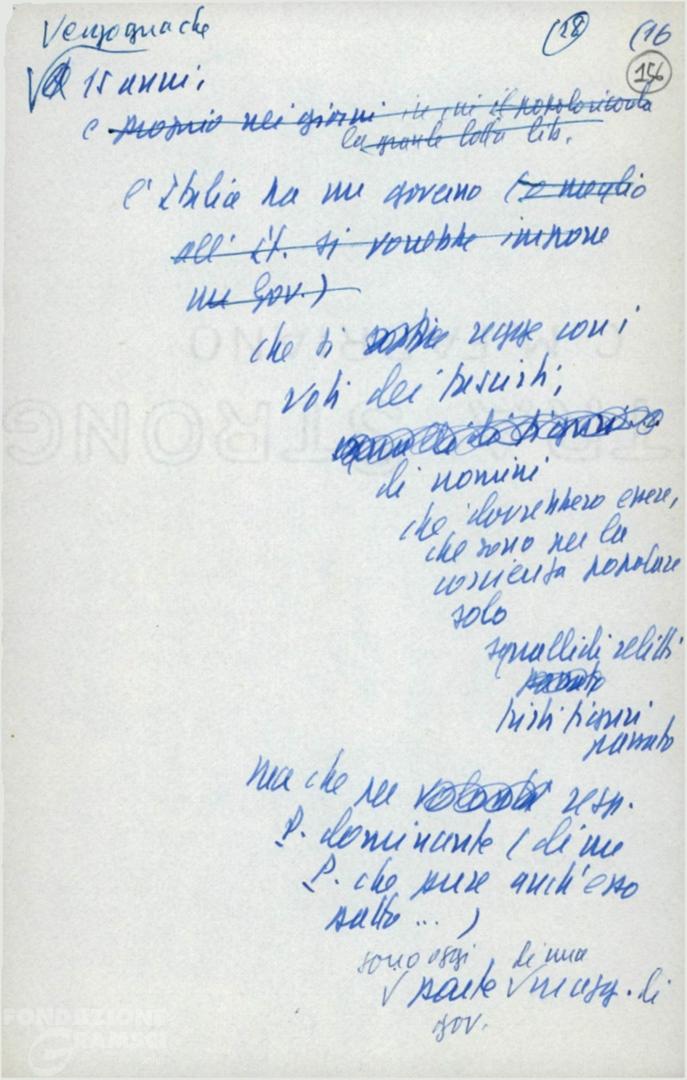 Vergogna che
(28) (16
156
A 15 anni,
e proprio nei giorni in cui il popolo ricorda
la grande lotta lib.
l'Italia ha un governo (o meglio
all' It. si vorrebbe imporre
un Gov.)
che si regge con i
voti dei fascisti,
di uomini
che dovrebbero essere,
che sono per la
coscienza popolare
solo
squallidi relitti
tristi figuri
passato
ma che per resp.
P. dominante (di un
P. che pure anch'esso
sotto ... )
sono oggi di una
parte magg. di
gov.
FONDAZIONE
GRAMSCI